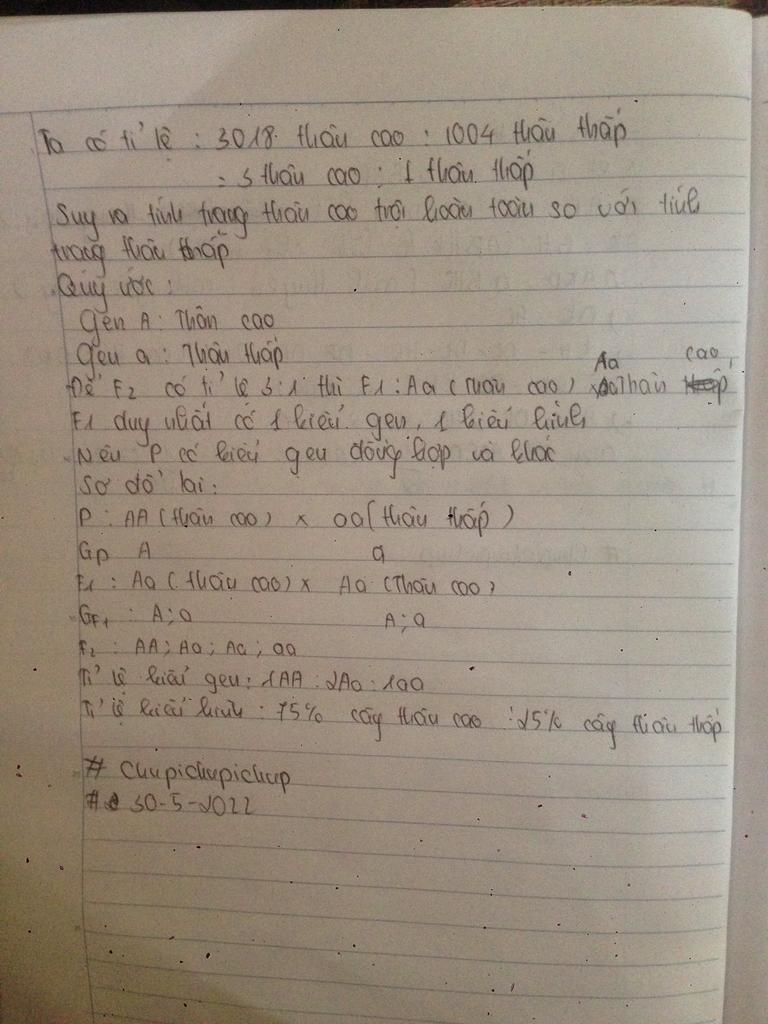 Ta có tỉ lệ : 3018 thân cao : 1004 thân thấp
= 3 thân cao : 1 thân thấp
Suy ra tính trạng thân cao trội hoàn toàn so với tính
trạng thân thấp
Quy ước :
Gen A : Thân cao
Gen a : Thân thấp
Để F2 có tỉ lệ 3:1 thì F1 : Aa (Thân cao) x Aa Thân cao,
F1 duy nhất có 1 kiểu gen, 1 kiểu hình
Nên P có kiểu gen đồng hợp và khác
Sơ đồ lai :
P : AA (thân cao) x aa (thân thấp)
Gp A a
F1 : Aa (thân cao) x Aa (Thân cao)
GF1 : A ; a A ; a
F2 : AA ; Aa ; Aa ; aa
Tỉ lệ kiểu gen : 1AA : 2Aa : 1aa
Tỉ lệ kiểu hình : 75% cây thân cao : 25% cây thân thấp
# Chupichupichup
# 30-5-2022